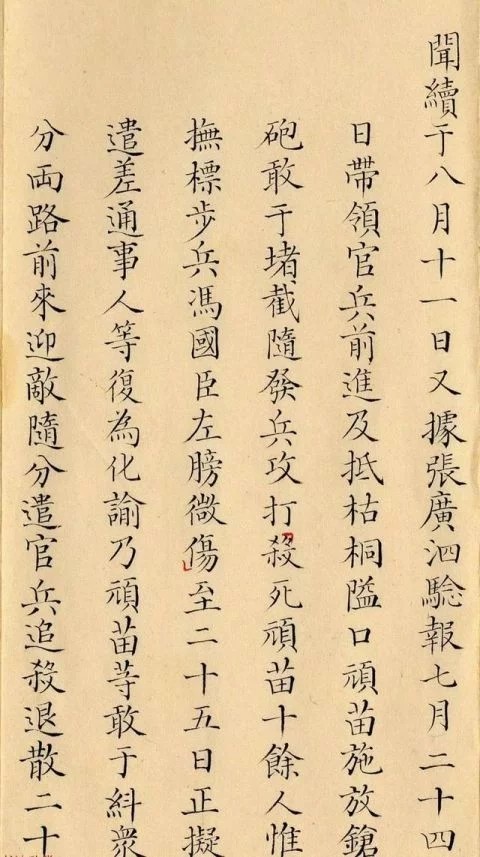 聞續于八月十一日又據張廣泗驗報七月二十四
日帶領官兵前進及抵枯桐隘口頑苗施放鎗
砲敢于堵截隨發兵攻打殺死頑苗十餘人惟
撫標步兵馮國臣左膀微傷至二十五日正擬
遣差通事人等復為化諭乃頑苗等敢于糾衆
分両路前來迎敵隨分遣官兵追殺退散二十